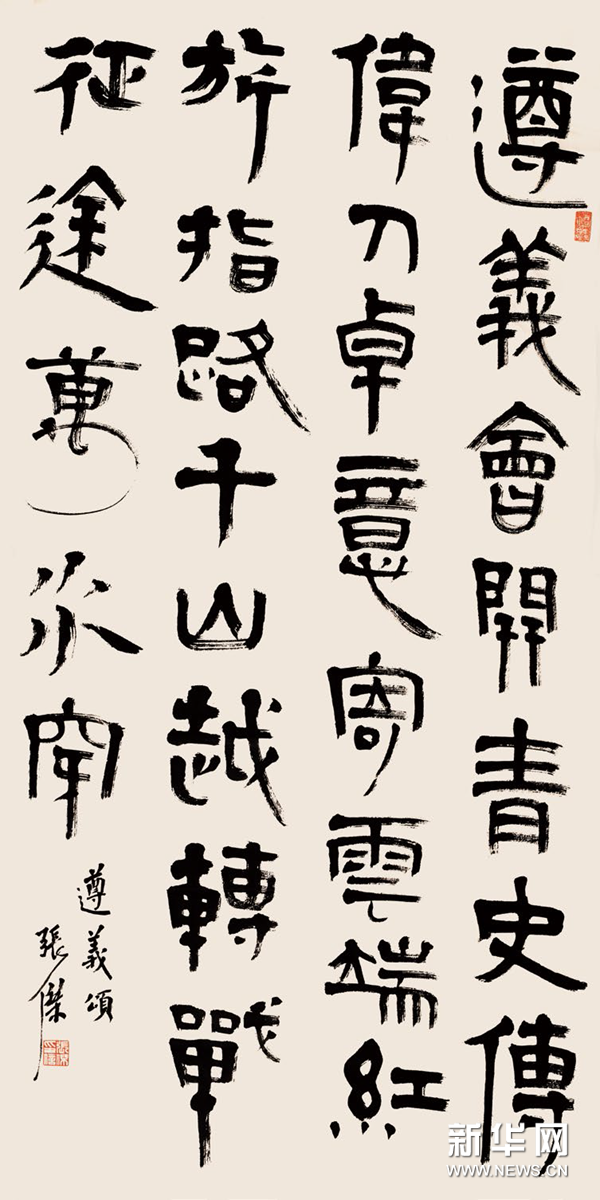 遵義會開青史傳
偉力卓意寄雲端紅
旂指路千山越轉戰
征途萬水穿
遵義頌
張傑
新华网
WWW.NEWS.CN